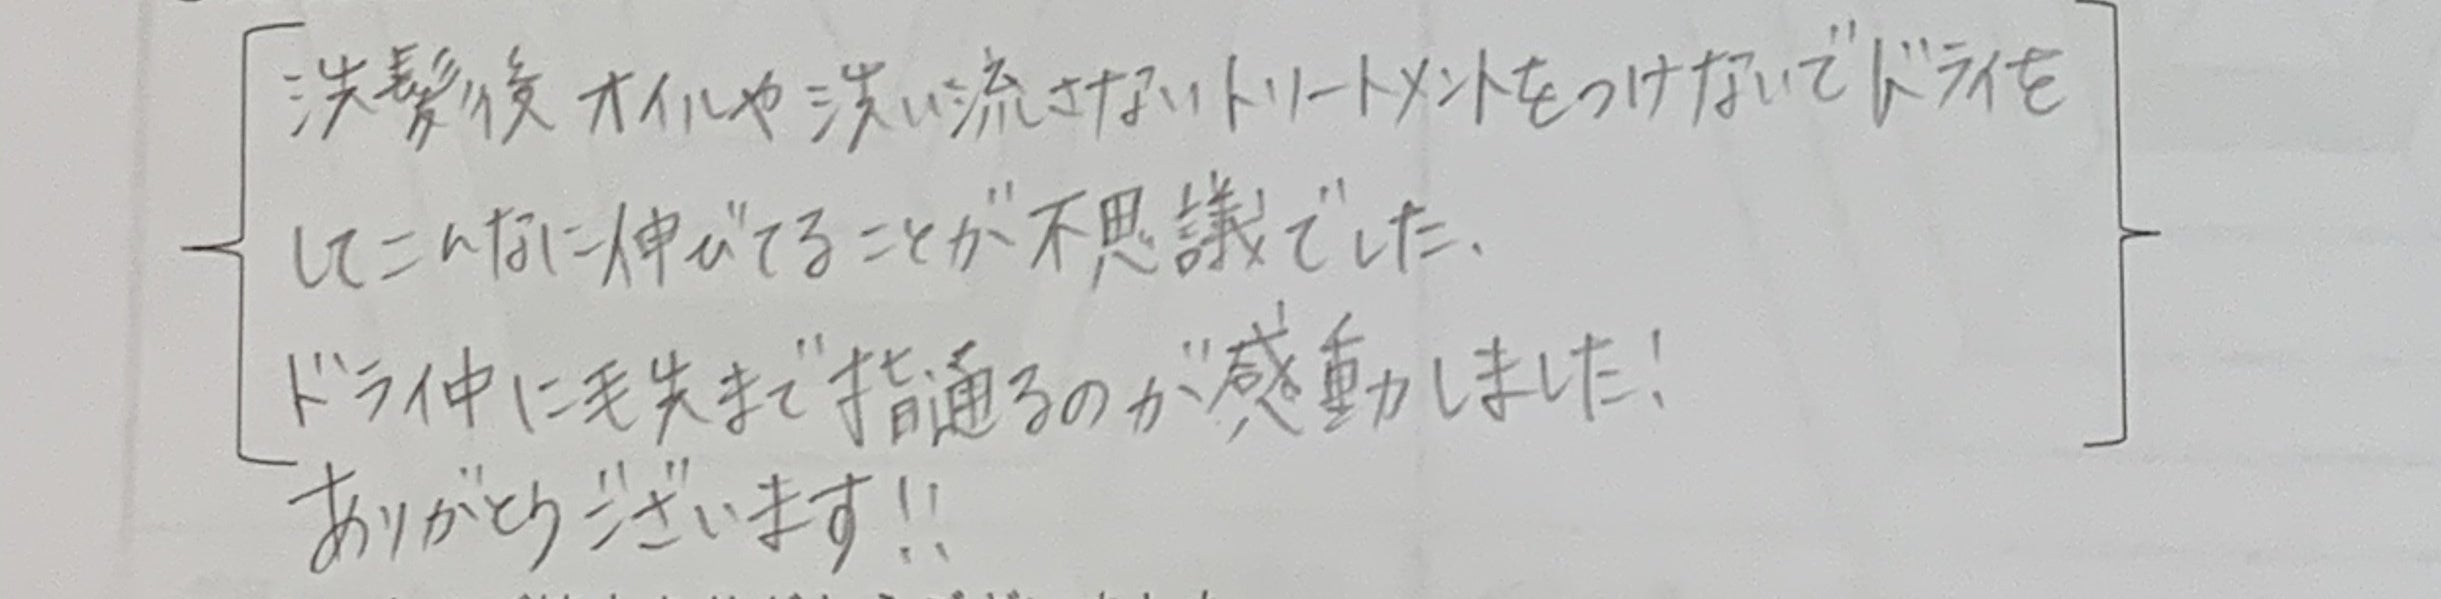 洗髪後 オイルや洗い流さないトリートメントをつけないでドライを
してこんなに伸びてることが不思議でした、
ドライ中に毛先まで指通るのが感動しました!
ありがとうございます!!